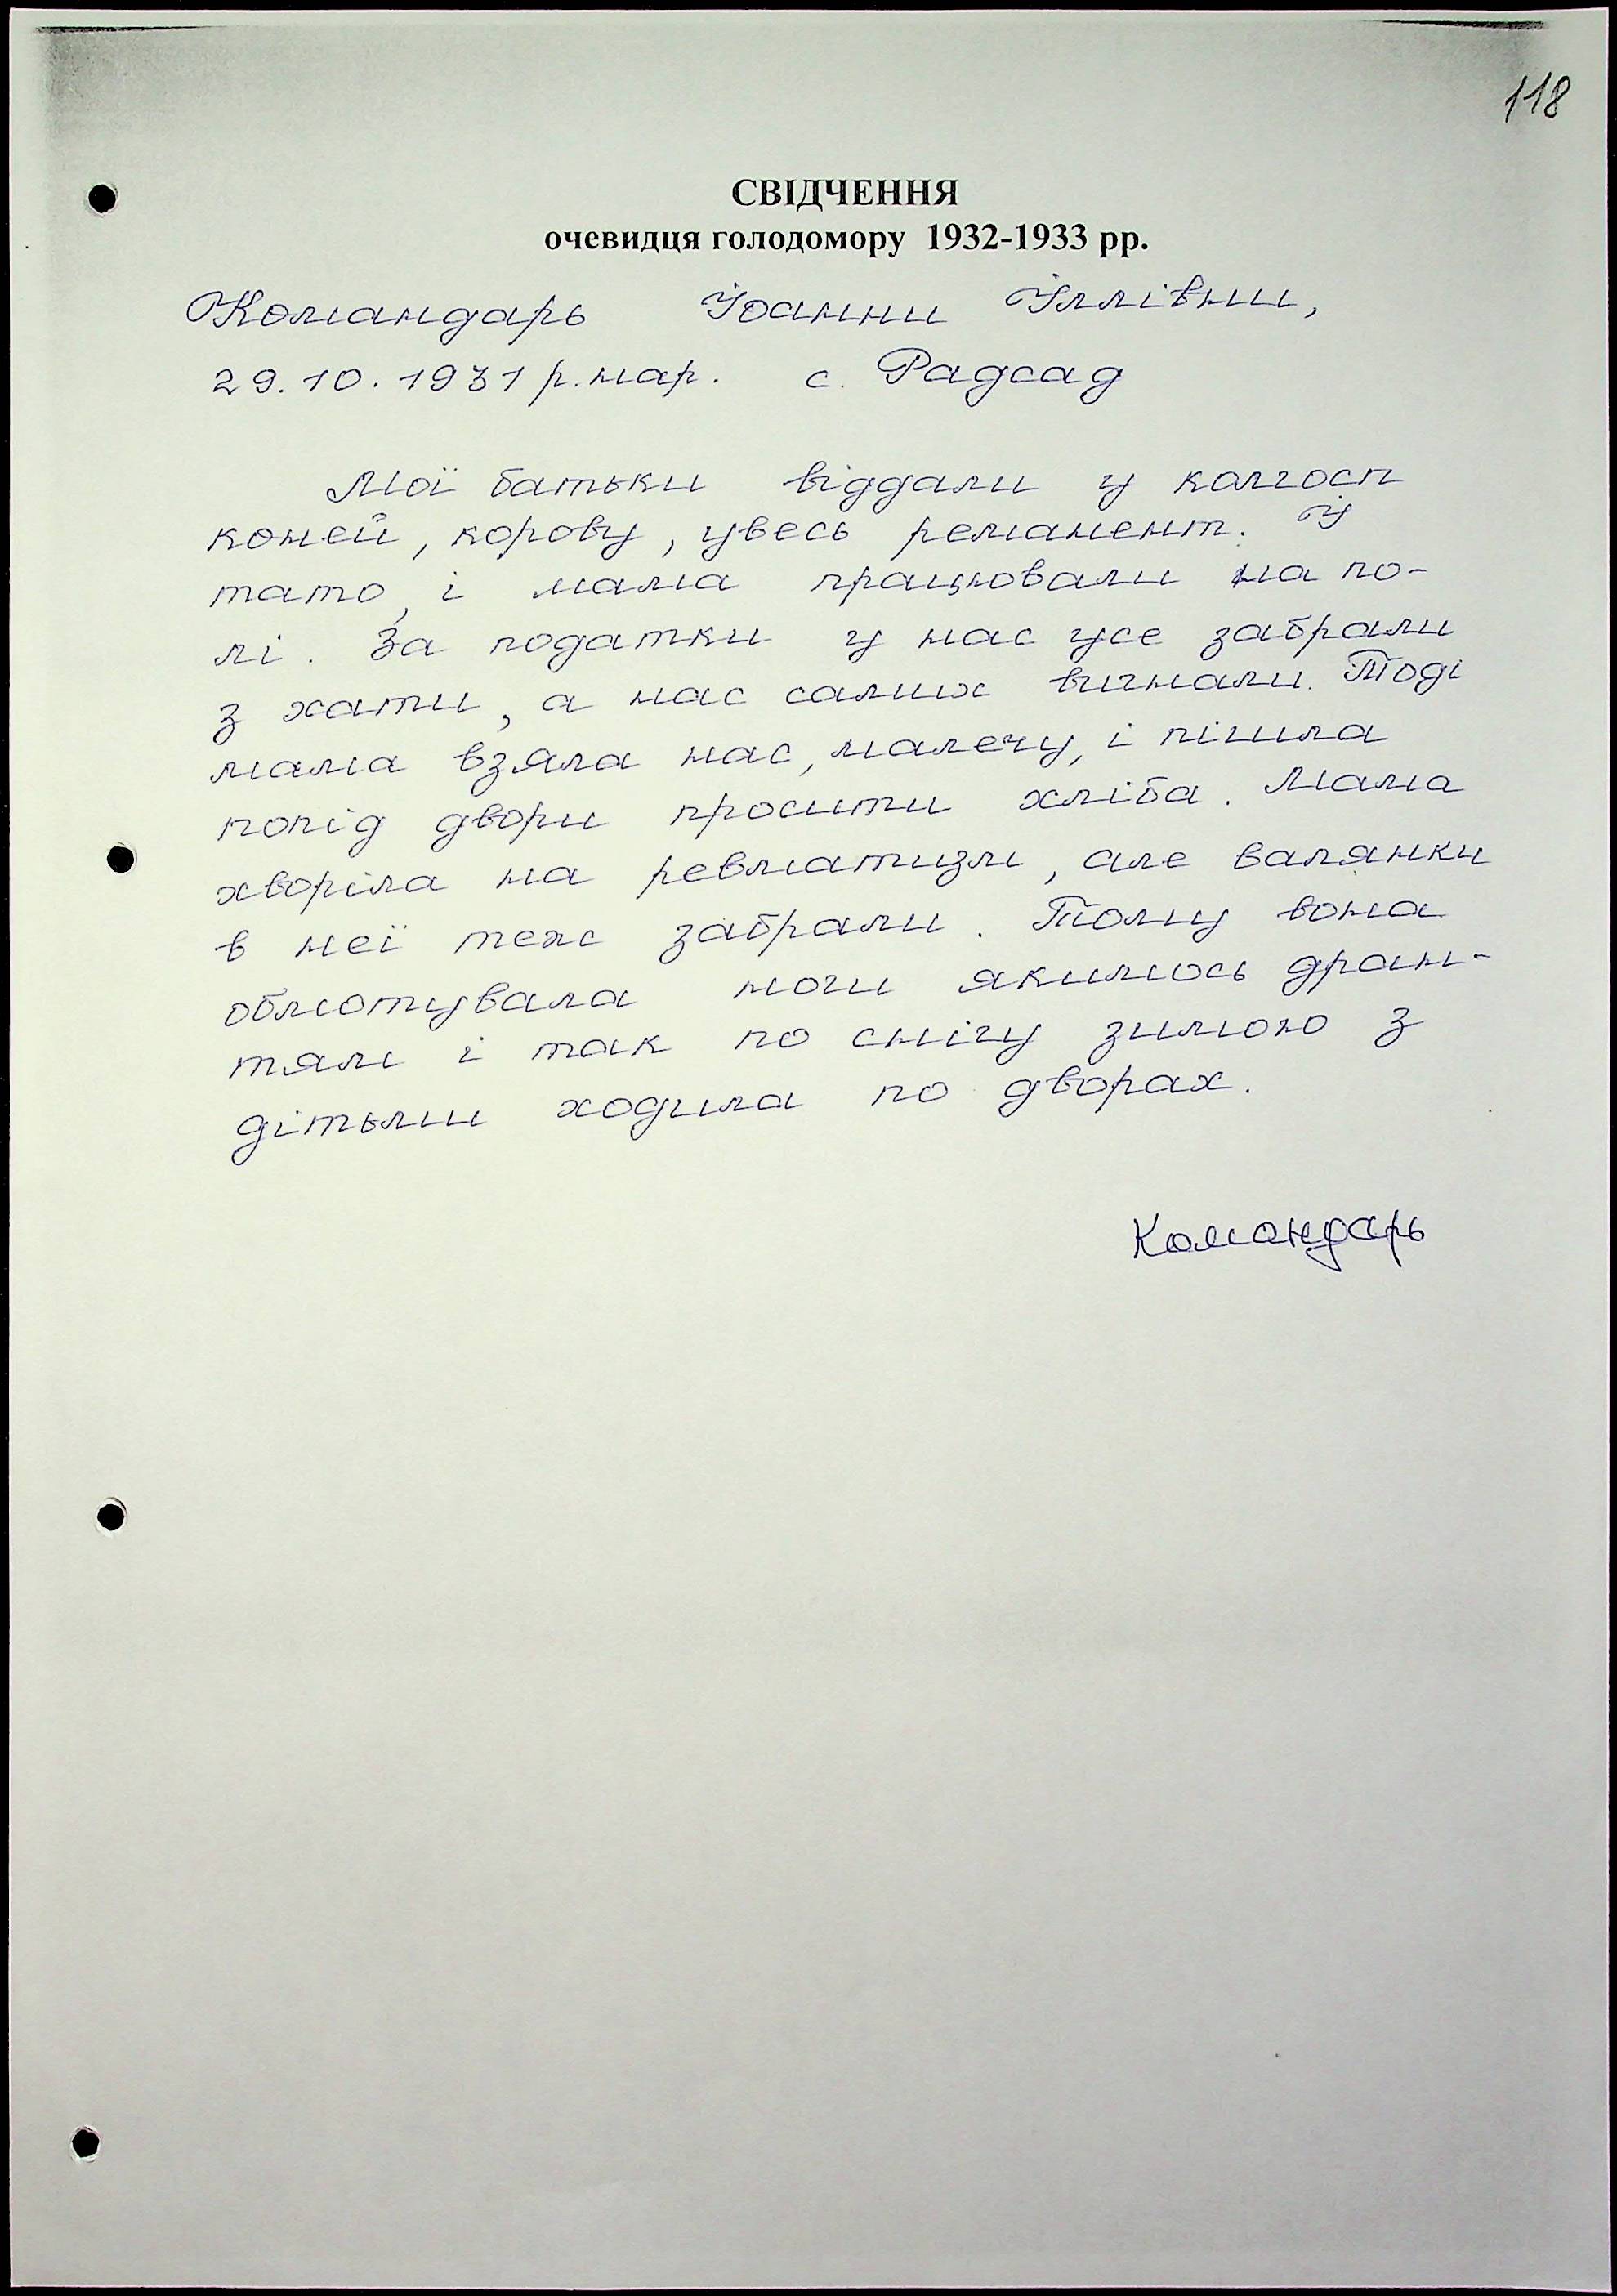 118
СВІДЧЕННЯ
очевидця голодомору 1932-1933 рр.
Командарь Іоанни Іллівни,
29.10.1931 р.нар. с. Радсад
Мої батьки віддали у колгосп
коней, корову, увесь реманент. І
тато, і мама працювали на по-
лі. За податки у нас усе забрали
з хати, а нас самих вигнали. Тоді
мама взяла нас, малечу, і пішла
попід двори просити хліба. Мама
хворіла на ревматизм, але валянки
в неї теж забрали. Тому вона
обмотувала ноги якимось дран-
тям і так по снігу зимою з
дітьми ходила по дворах.
Командарь